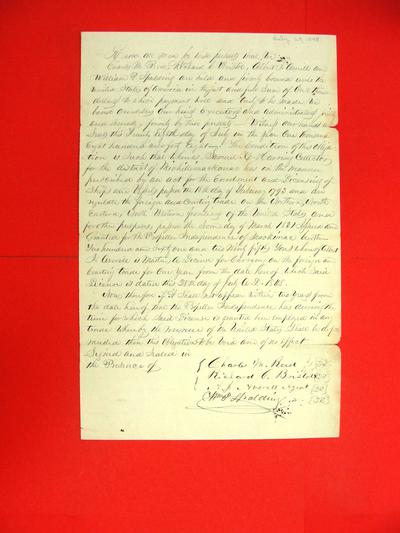 July 28, 1848
Know all men by these presents that We
Charles M. Reed, Richard C. Bristol,
William P. Spalding are held and firmly bound unto the
United States of America in the just and full Sum of One
dollars to which payment Well and truly to be made We
bind ourselves our heirs executors and administrators
and severally firmly by these presents. Witness our hands
Seals this twenty eighth day of July in the year One thousand
eight hundred and forty Eight. The Condition of this obliga
tion is Such that Whereas Samuel K. Haring Collector
for the district of Michilimackinac has in the manner
prescribed by an act for the Enrolment and Licensing of
Ships and Vessels passed the 18th day of February 1793 and An
regulate the foreign and coasting trade on the northern, North
Eastern, North Western frontiers of the United States and
for other purposes, passed the Second day of March 1831
the Propeller Independence of Mackinac
Two hundred and Sixty one and
J. Averill is Master, a License for Carrying on the foreign and
Coasting trade for One Year from the date hereof Which Said
License is dated this 28th day of July A.D. 1848.
Now therefore if it Shall not appear within two years from
the date hereof that the Propeller Independence has during the
time for which Said License is granted been employed in any
trade whereby the revenue of the United States Shall be de
frauded then this Obligation to be void and of no effect
Signed and Sealed in
the Presence of
Charles M. Reed
Richard C. Bristol
A. J. Averell Agent
Wm P. Spalding